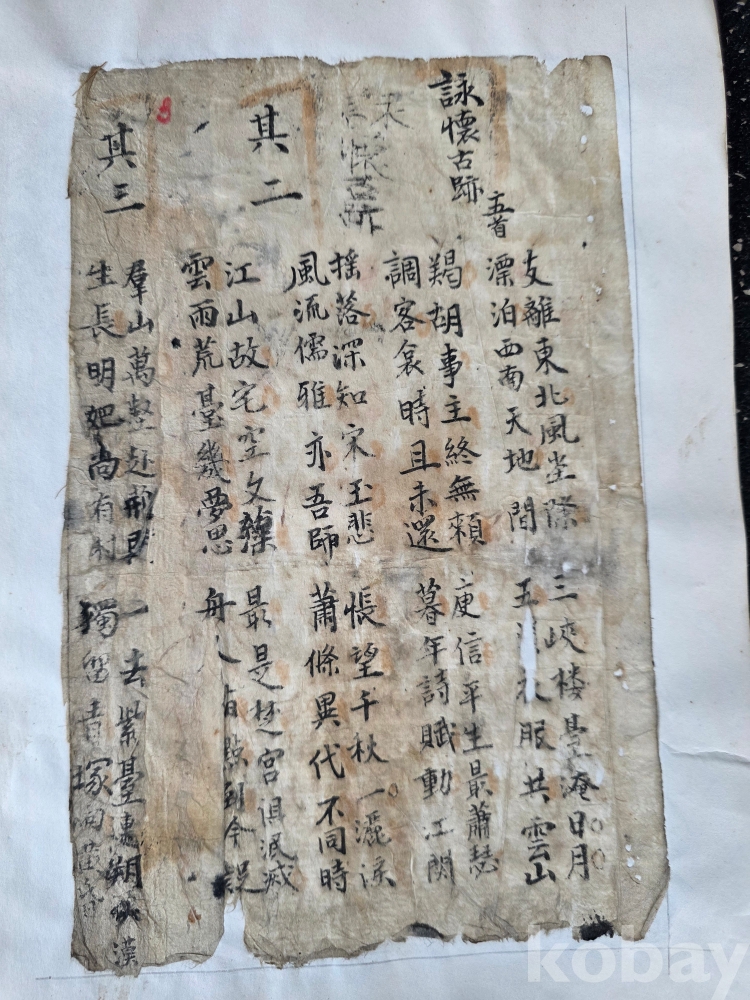 詠懷古跡 五首
支離東北風尘際 三峽楼臺淹日月
漂泊西南天地間 五 衣服共雲山
羯胡事主終無賴 庾信平生最蕭瑟
調客哀時且未還 暮年詩賦動江関
懷古跡
其二
搖落深知宋玉悲 悵望千秋一灑淚
風流儒雅亦吾師 蕭條異代不同時
江山故宅空文藻 最是楚宮俱泯滅
雲雨荒臺幾夢思 舟人 點到今
其三
羣山萬壑赴荊門 一去紫臺連朔漠
生長明妃尚有村 獨留青塚向黃昏
kobay